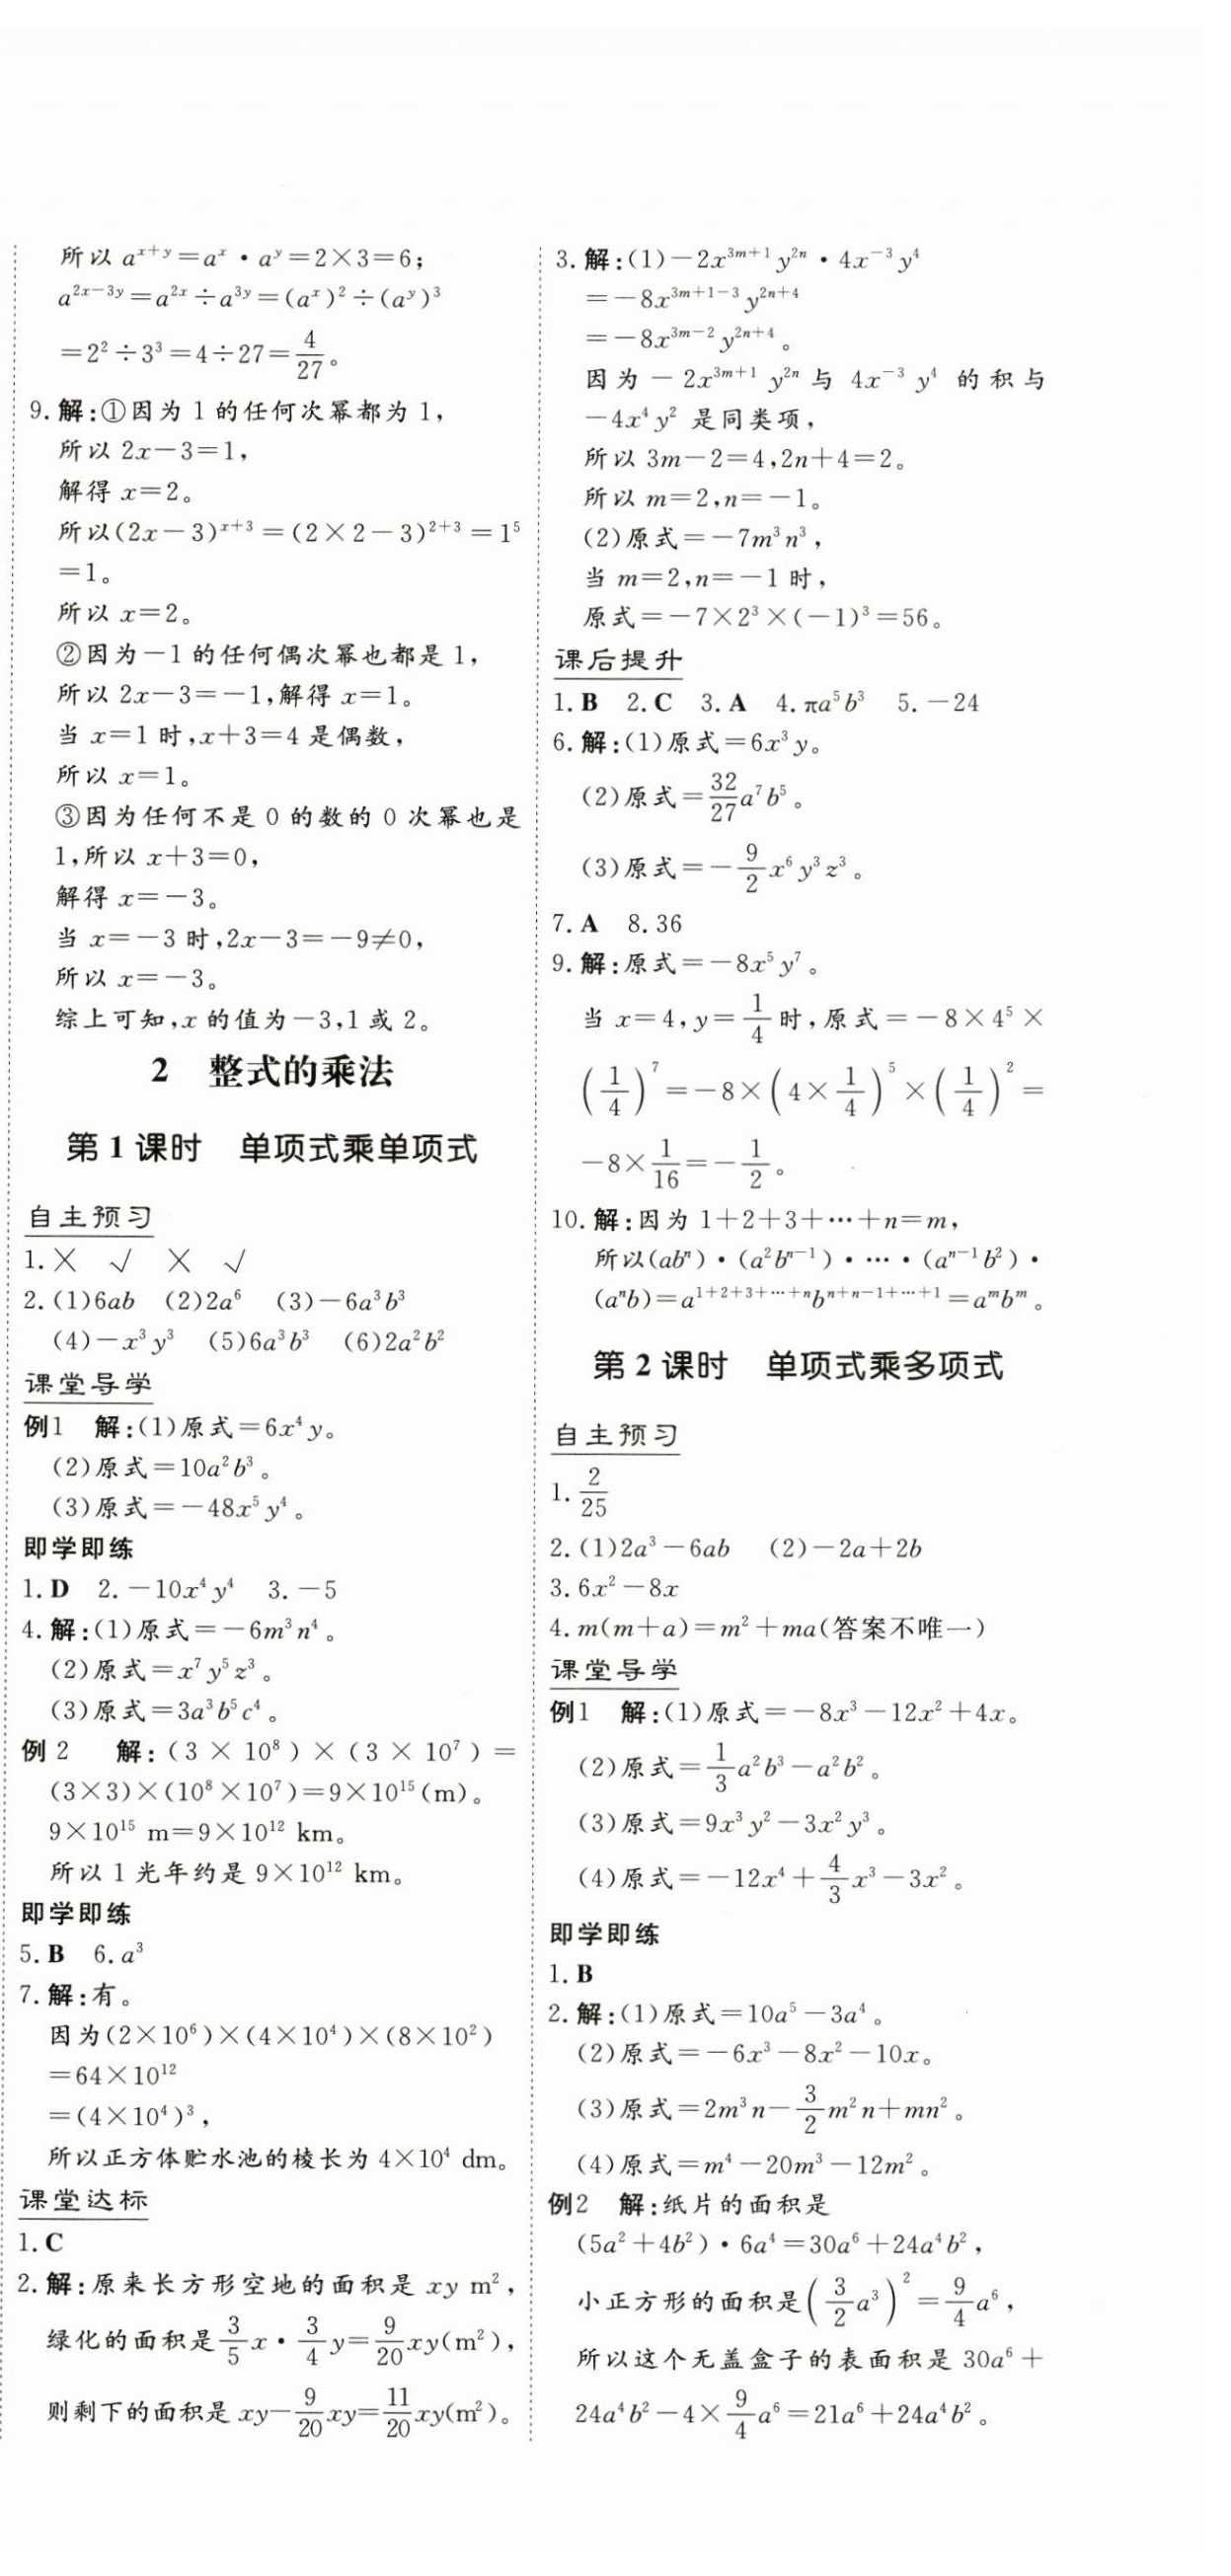 所以 a^{x+y}=a^x·a^y=2×3=6;
a^{2x-3y}=a^{2x}÷a^{3y}=(a^x)^2÷(a^y)^3
=2^2÷3^3=4÷27=4/27。
9.解:①因为 1 的任何次幂都为 1,
所以 2x-3=1,
解得 x=2。
所以(2x-3)^{x+3}=(2×2-3)^{2+3}=1^5
=1。
所以 x=2。
②因为-1 的任何偶次幂也都是 1,
所以 2x-3=-1,解得 x=1。
当 x=1 时,x+3=4 是偶数,
所以 x=1。
③因为任何不是 0 的数的 0 次幂也是
1,所以 x+3=0,
解得 x=-3。
当 x=-3 时,2x-3=-9≠0,
所以 x=-3。
综上可知,x 的值为-3,1 或 2。
2 整式的乘法
第 1 课时 单项式乘单项式
自主预习
1.× √ × √
2.(1)6ab (2)2a^6 (3)-6a^3b^3
(4)-x^3y^3 (5)6a^3b^3 (6)2a^2b^2
课堂导学
例1 解:(1)原式=6x^4y。
(2)原式=10a^2b^3。
(3)原式=-48x^5y^4。
即学即练
1.D 2.-10x^4y^4 3.-5
4.解:(1)原式=-6m^3n^4。
(2)原式=x^7y^5z^3。
(3)原式=3a^3b^5c^4。
例 2 解:(3×10^8)×(3×10^7)=
(3×3)×(10^8×10^7)=9×10^{15}(m)。
9×10^{15} m=9×10^{12} km。
所以 1 光年约是 9×10^{12} km。
即学即练
5.B 6.a^3
7.解:有。
因为(2×10^6)×(4×10^4)×(8×10^2)
=64×10^{12}
=(4×10^4)^3,
所以正方体贮水池的棱长为 4×10^4 dm。
课堂达标
1.C
2.解:原来长方形空地的面积是 xy m^2,
绿化的面积是3/5x·3/4y=9/20xy(m^2),
则剩下的面积是 xy-9/20xy=11/20xy(m^2)。
3.解:(1)-2x^{3m+1}y^{2n}·4x^{-3}y^4
=-8x^{3m+1-3}y^{2n+4}
=-8x^{3m-2}y^{2n+4}。
因为-2x^{3m+1}y^{2n}与 4x^{-3}y^4 的积与
-4x^4y^2 是同类项,
所以 3m-2=4,2n+4=2。
所以 m=2,n=-1。
(2)原式=-7m^3n^3,
当 m=2,n=-1 时,
原式=-7×2^3×(-1)^3=56。
课后提升
1.B 2.C 3.A 4.πa^5b^3 5.-24
6.解:(1)原式=6x^3y。
(2)原式=32/27a^7b^5。
(3)原式=-9/2x^6y^3z^3。
7.A 8.36
9.解:原式=-8x^5y^7。
当 x=4,y=1/4时,原式=-8×4^5×
(1/4)^7=-8×(4×1/4)^5×(1/4)^2=
-8×1/16=-1/2。
10.解:因为 1+2+3+…+n=m,
所以(ab^n)·(a^2b^{n-1})·…·(a^{n-1}b^2)·
(a^nb)=a^{1+2+3+…+n}b^{n+n-1+…+1}=a^mb^m。
第 2 课时 单项式乘多项式
自主预习
1.2/25
2.(1)2a^3-6ab (2)-2a+2b
3.6x^2-8x
4.m(m+a)=m^2+ma(答案不唯一)
课堂导学
例1 解:(1)原式=-8x^3-12x^2+4x。
(2)原式=1/3a^2b^3-a^2b^2。
(3)原式=9x^3y^2-3x^2y^3。
(4)原式=-12x^4+4/3x^3-3x^2。
即学即练
1.B
2.解:(1)原式=10a^5-3a^4。
(2)原式=-6x^3-8x^2-10x。
(3)原式=2m^3n-3/2m^2n+mn^2。
(4)原式=m^4-20m^3-12m^2。
例2 解:纸片的面积是
(5a^2+4b^2)·6a^4=30a^6+24a^4b^2,
小正方形的面积是(3/2a^3)^2=9/4a^6,
所以这个无盖盒子的表面积是 30a^6+
24a^4b^2-4×9/4a^6=21a^6+24a^4b^2。